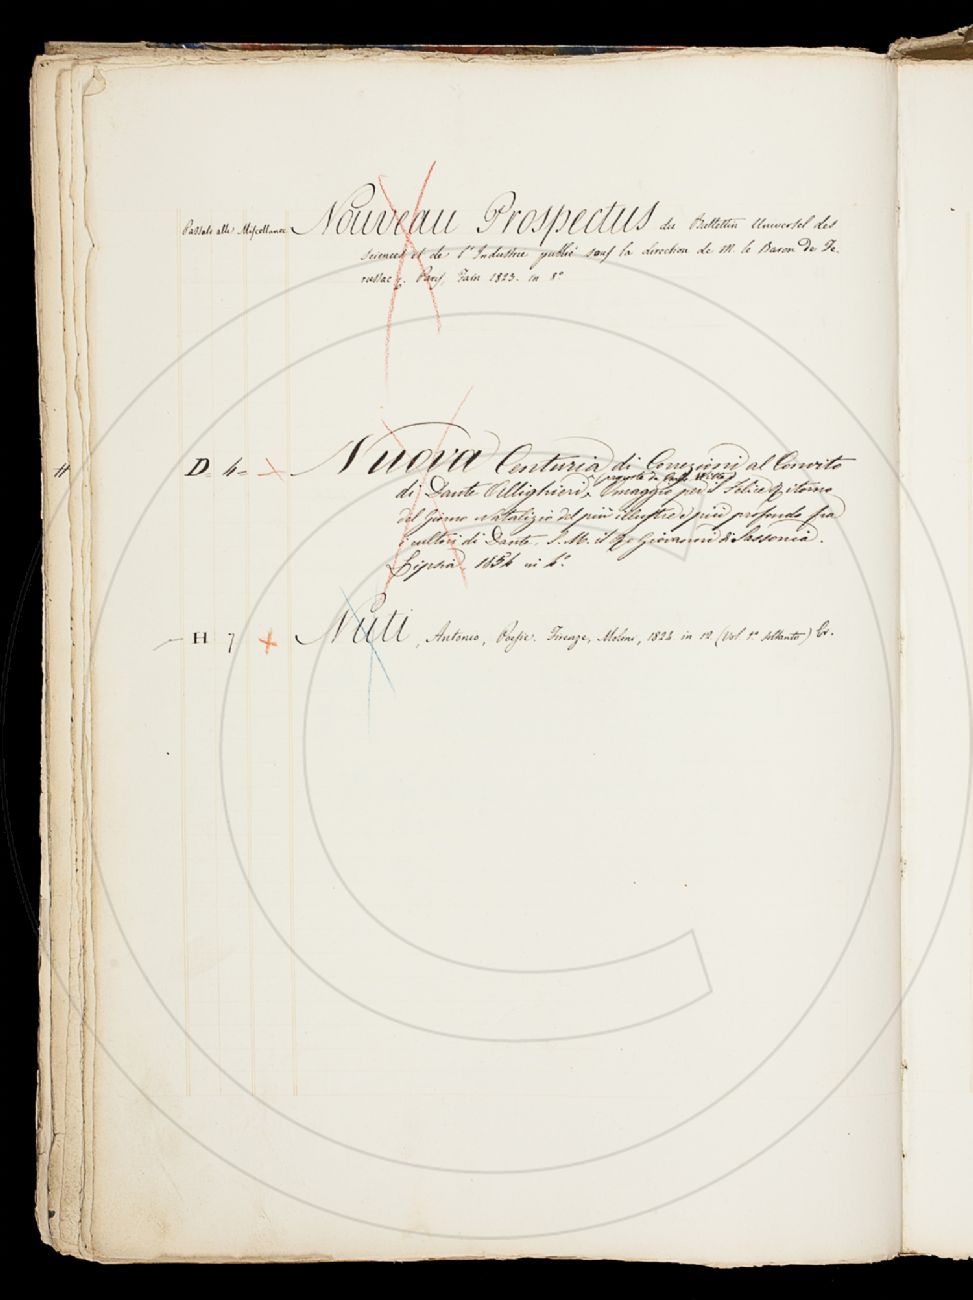 Passato alle Miscellanee Nouveau Prospectus du Bulletin Universel des
sciences et de l'Industrie publié sous la direction de M. le Baron de Fe-
russac &. Paris, Fain 1823. in 8°
# D 4 Nuova Centuria di Correzioni al Convito
proposta da
di Dante Allighieri, Omaggio pel il Felice Ritorno
del Giorno Natalizio del più illustre e più profondo fra
i cultori di Dante, S. M. il Re Giovanni di Sassonia.
Lipsia, 1854 in 4°.
H 7 + Nuti, Antonio, Poesie. Firenze, Molini, 1824 in 12 (Vol 1° soltanto) Br.